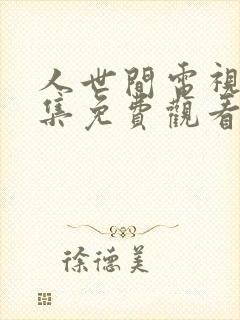 人世間電視
集免費觀看
徐德美